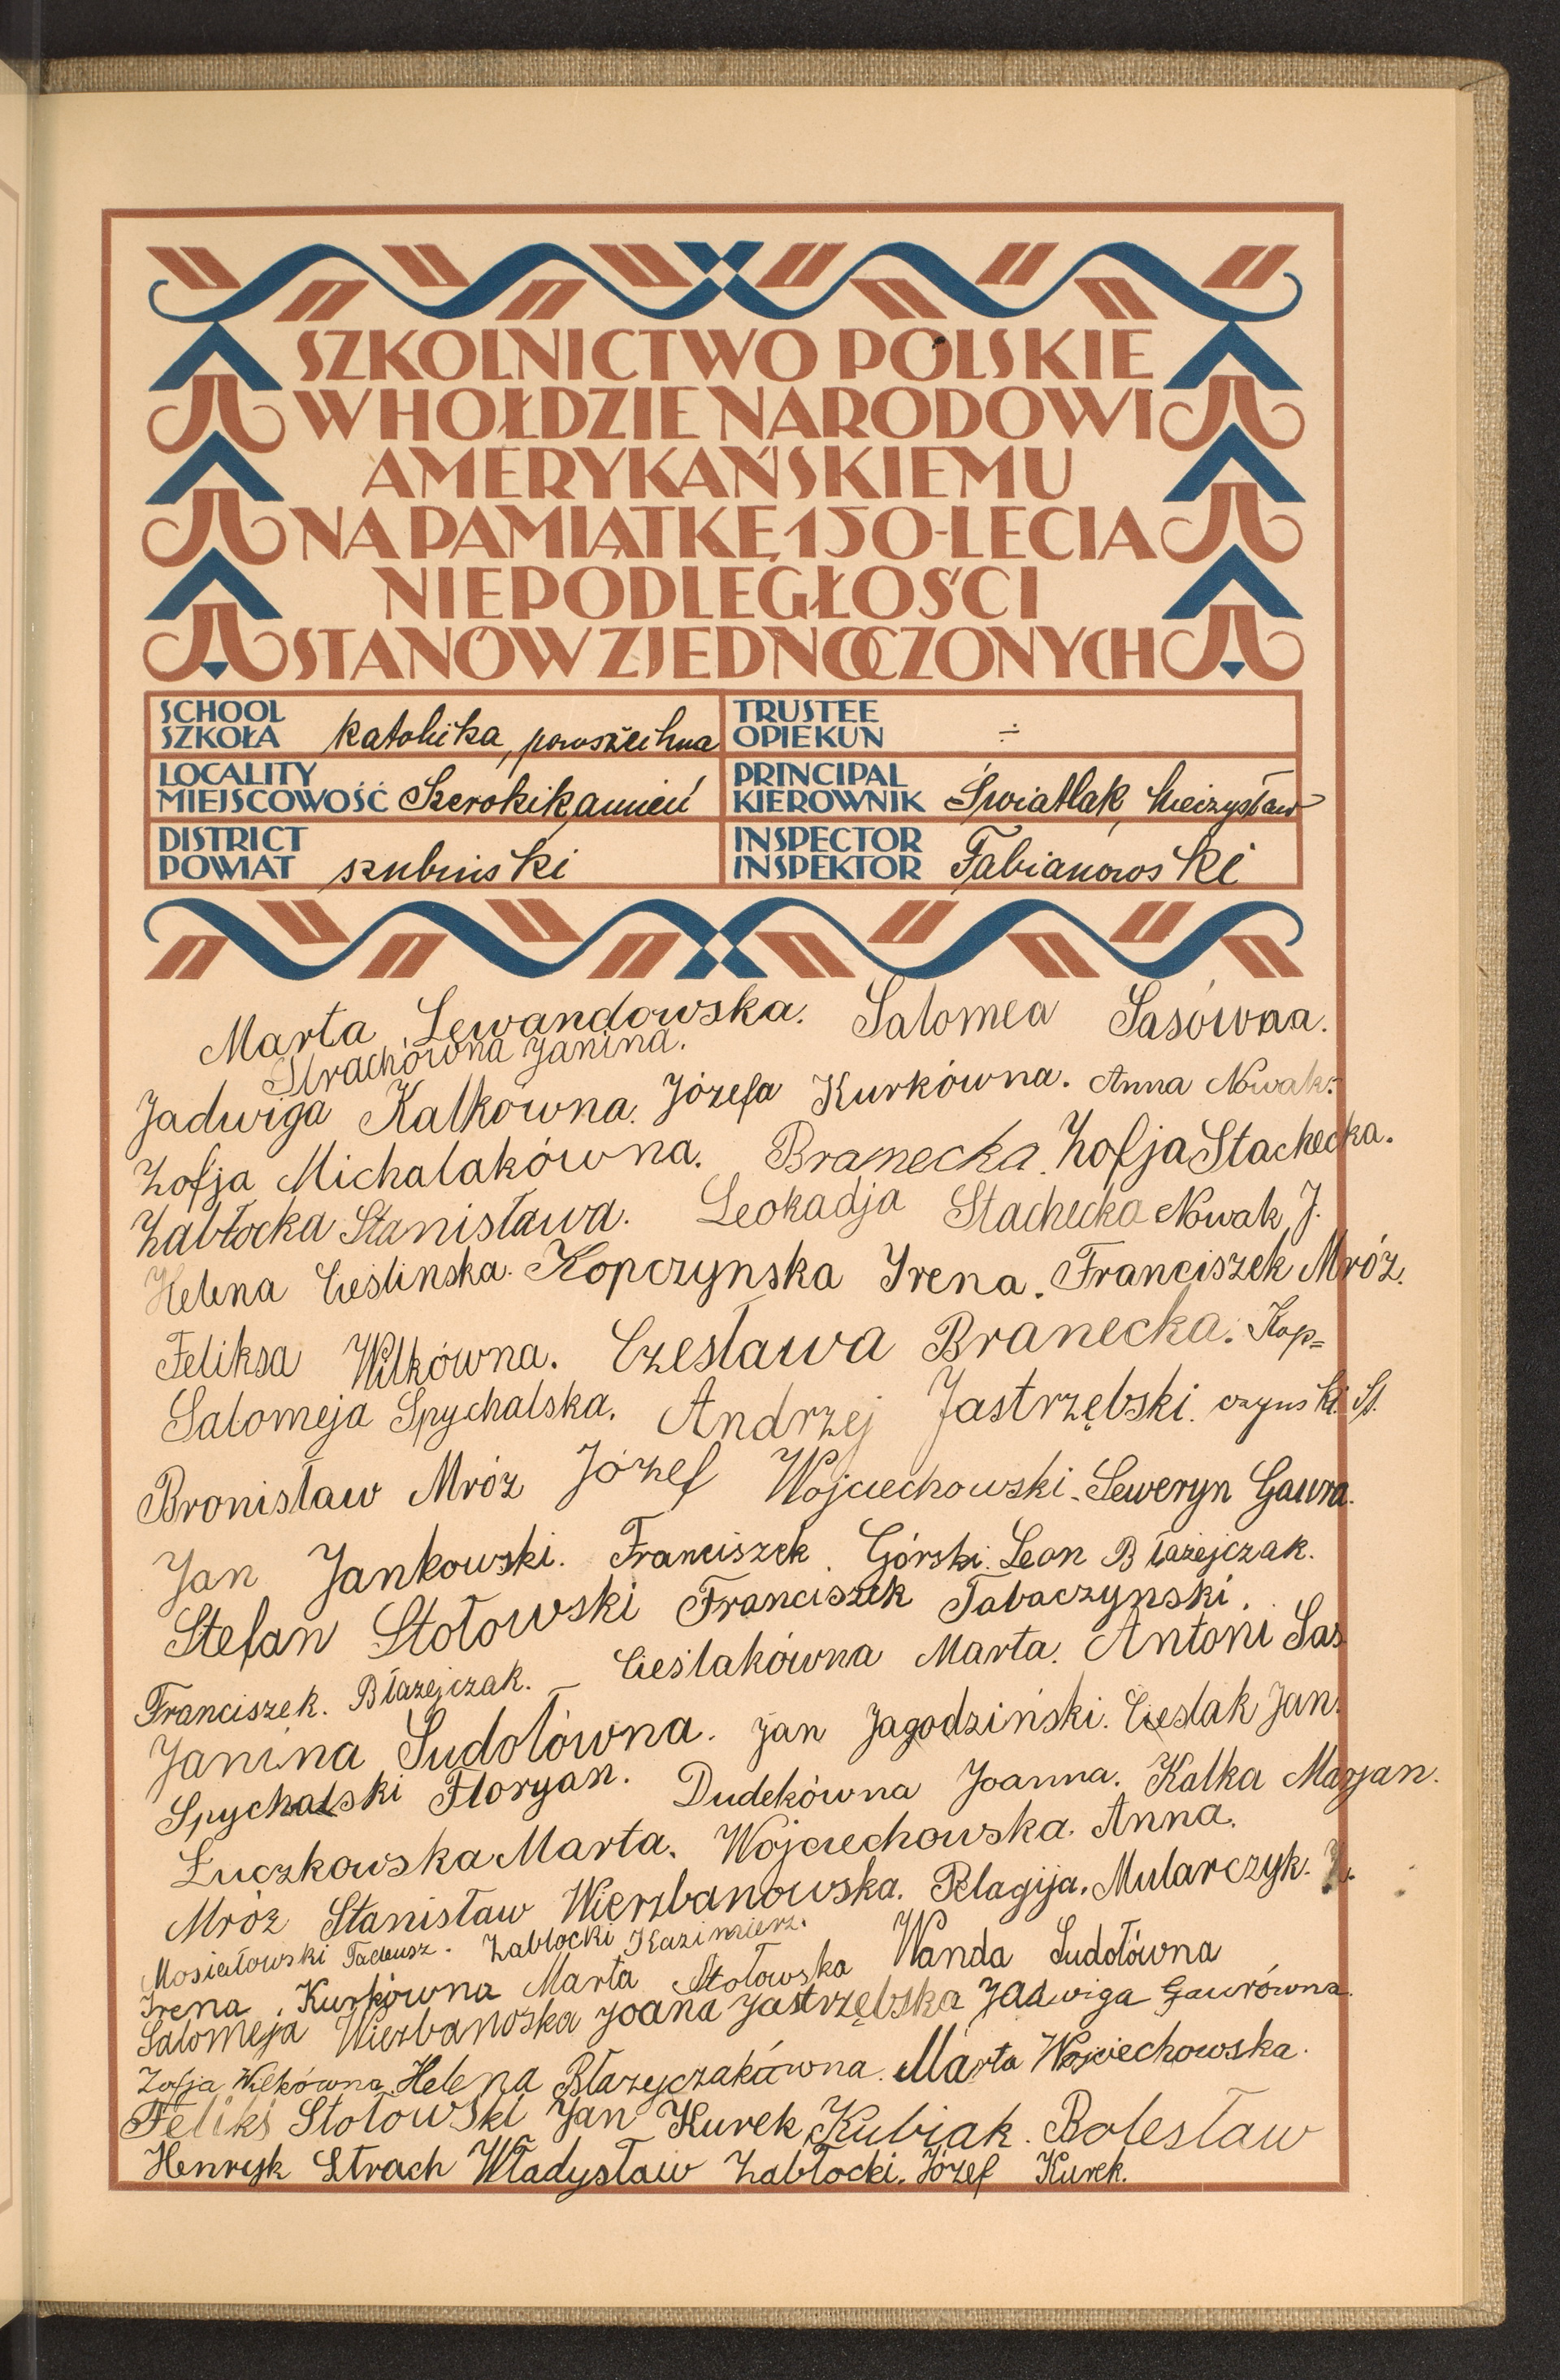 SZKOLNICTWO POLSKIE
W HOŁDZIE NARODOWI
AMERYKAŃSKIEMU
NA PAMIĄTKĘ 150-LECIA
NIEPODLEGŁOŚCI
STANÓW ZJEDNOCZONYCH
SCHOOL
SZKOŁA katolicka, powszechna
TRUSTEE
OPIEKUN ÷
LOCALITY
MIEJSCOWOŚĆ Szerokikamień
PRINCIPAL
KIEROWNIK Światlak, Mieczysław
DISTRICT
POWIAT szubiński
INSPECTOR
INSPEKTOR Fabianowski
Marta Lewandowska. Salomea Sasówna.
Strachówna Janina.
Jadwiga Kalkówna. Józefa Kurkówna. Anna Nowak.
Zofja Michalakówna. Branecka Zofja Stachecka.
Zabłocka Stanisława. Leokadja Stachecka Nowak, J.
Helena Cieślinska. Kopczynska Irena. Franciszek Mróz.
Feliksa Wilkówna. Czesława Branecka. Kop=
Salomeja Spychalska. Andrzej Jastrzębski. czynski. St.
Bronisław Mróz Józef Wojciechowski. Seweryn Gawra.
Jan Jankowski. Franciszek Górski. Leon Błażejczak.
Stefan Stołowski Franciszek Tabaczynski.
Franciszek. Błażejczak. – Cieślakówna Marta. Antoni Sas
Janina Sudołówna. Jan Jagodziński. Cieslak Jan.
Spychalski Floryan. Dudekówna Joanna. Kalka Marjan.
Łuczkowska Marta. Wojciechowska. Anna.
Mróz Stanisław Wierzbanowska. Pelagija. Mularczyk.
Mosiałowski Tadeusz. Zabłocki Kazimierz.
Irena. Kurkówna Marta Stołowska Wanda Sudołówna
Salomeja Wierzbanoska Joana Jastrzębska Jadwiga Gawrówna.
Zofja Wilkówna Helena Błazyczakówna. Marta Wojciechowska.
Feliks Stołowski Jan Kurek Kubiak. Bolesław
Henryk Strach Władysław Zabłocki. Józef Kurek.